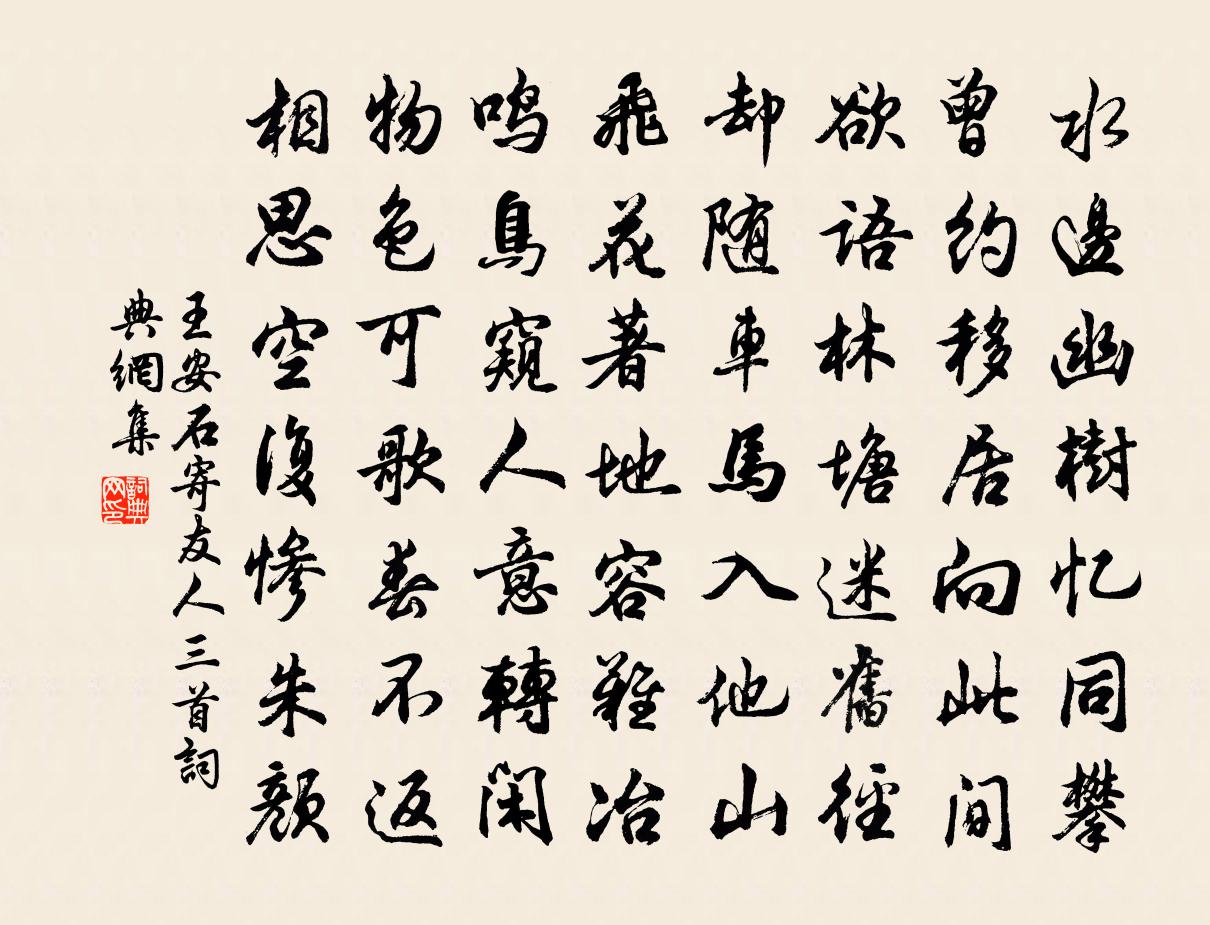 水邊幽樹忆同攀
曾約移居向此間
欲語林塘迷舊徑
却随車馬入他山
飛花著地容難冶
鸣鳥窺人意轉闲
物色可歌春不返
相思空復惨朱顔
王安石寄友人三首詞
典網集
詞典网印